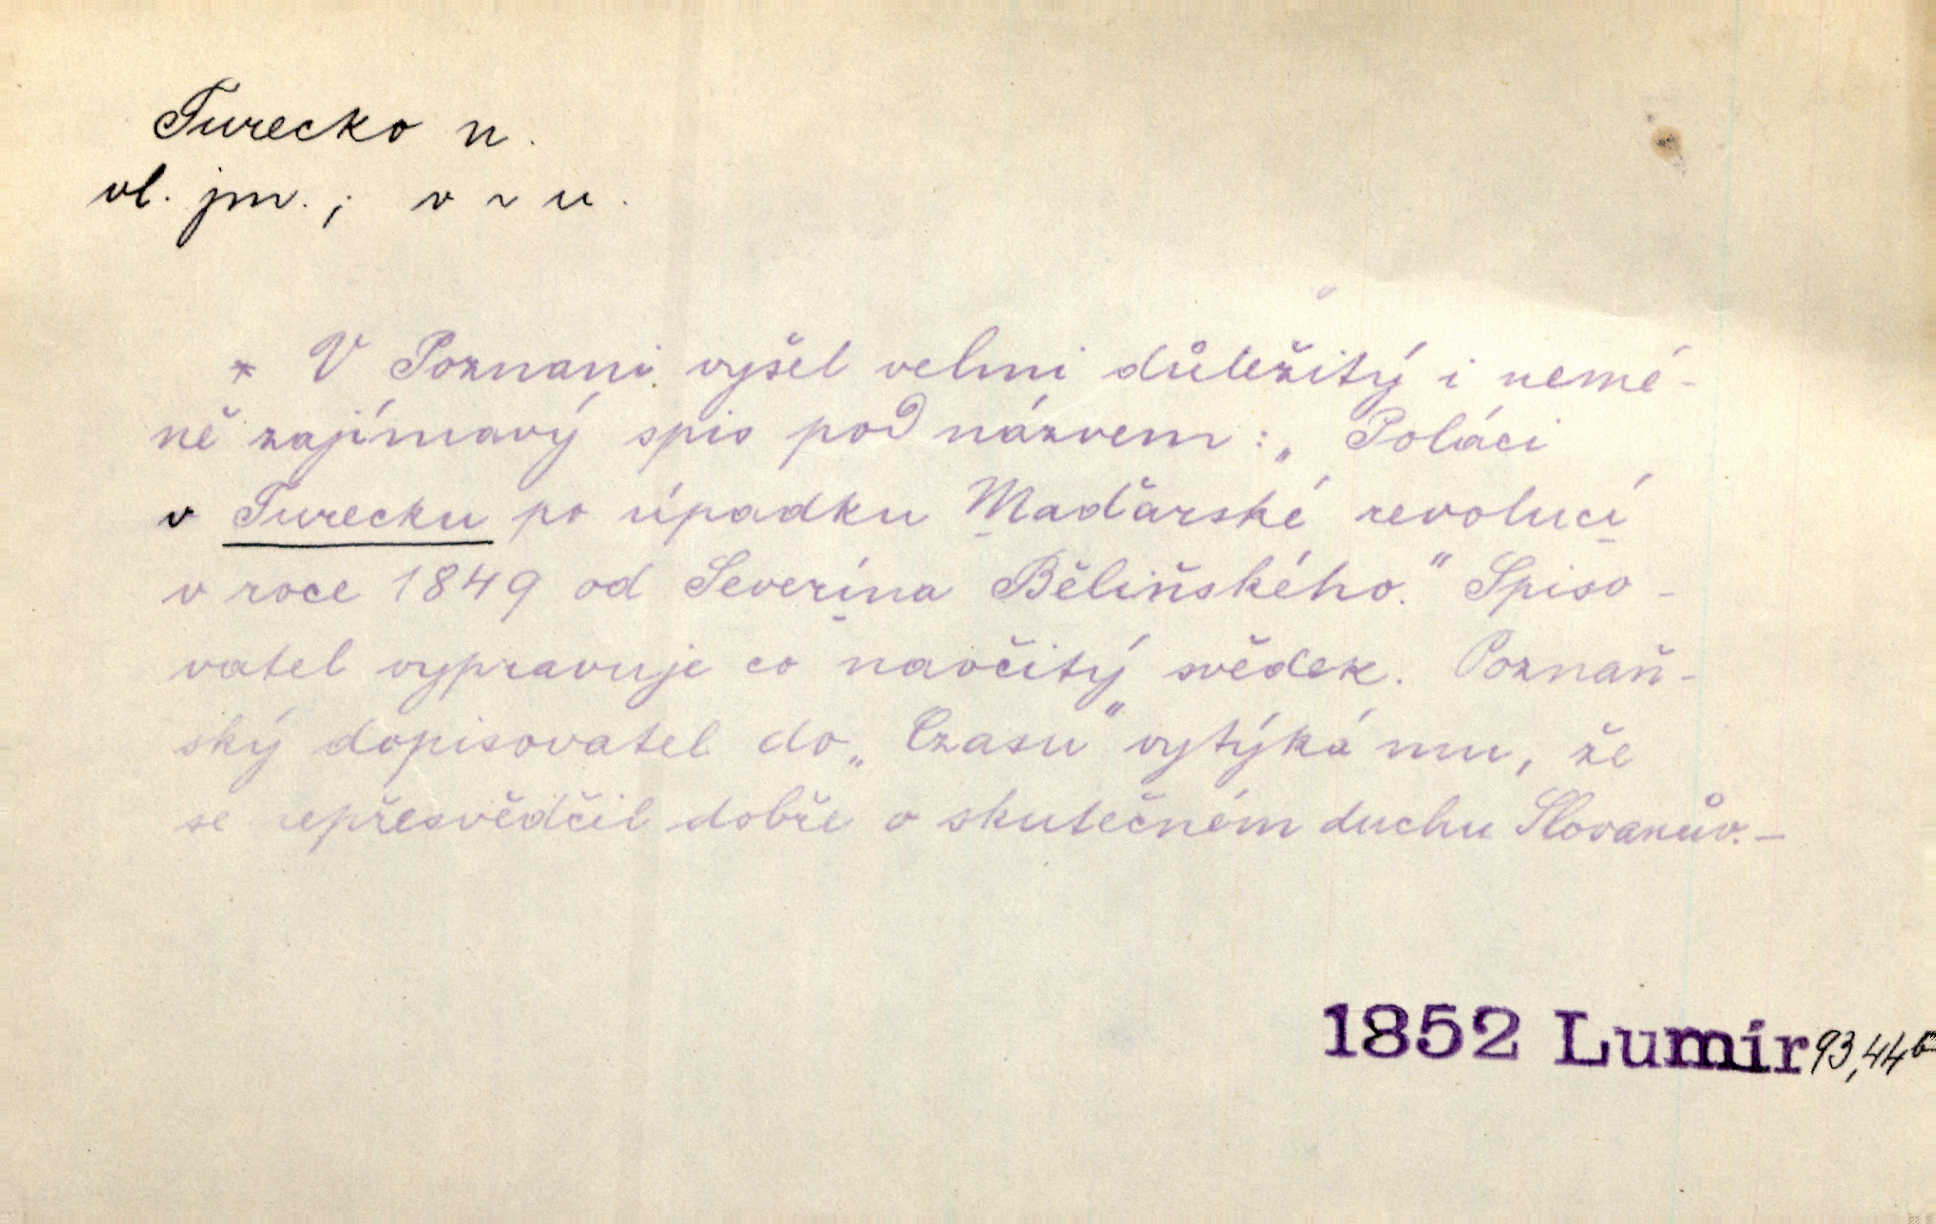 Turecko n.
vl. jm.; v ~ u.
* V Poznani vyšel velmi důležitý i nemé-
ně zajímavý spis pod názvem: „Poláci
v Turecku po úpadku Maďarské revolucí
v roce 1849 od Severína Běliňského." Spiso-
vatel vypravuje co navčitý svědek. Poznaň-
ský dopisovatel do „Czasu" vytýká mu, že
se nepřesvědčil dobře o skutečném duchu Slovanův. –
1852 Lumír 93,44